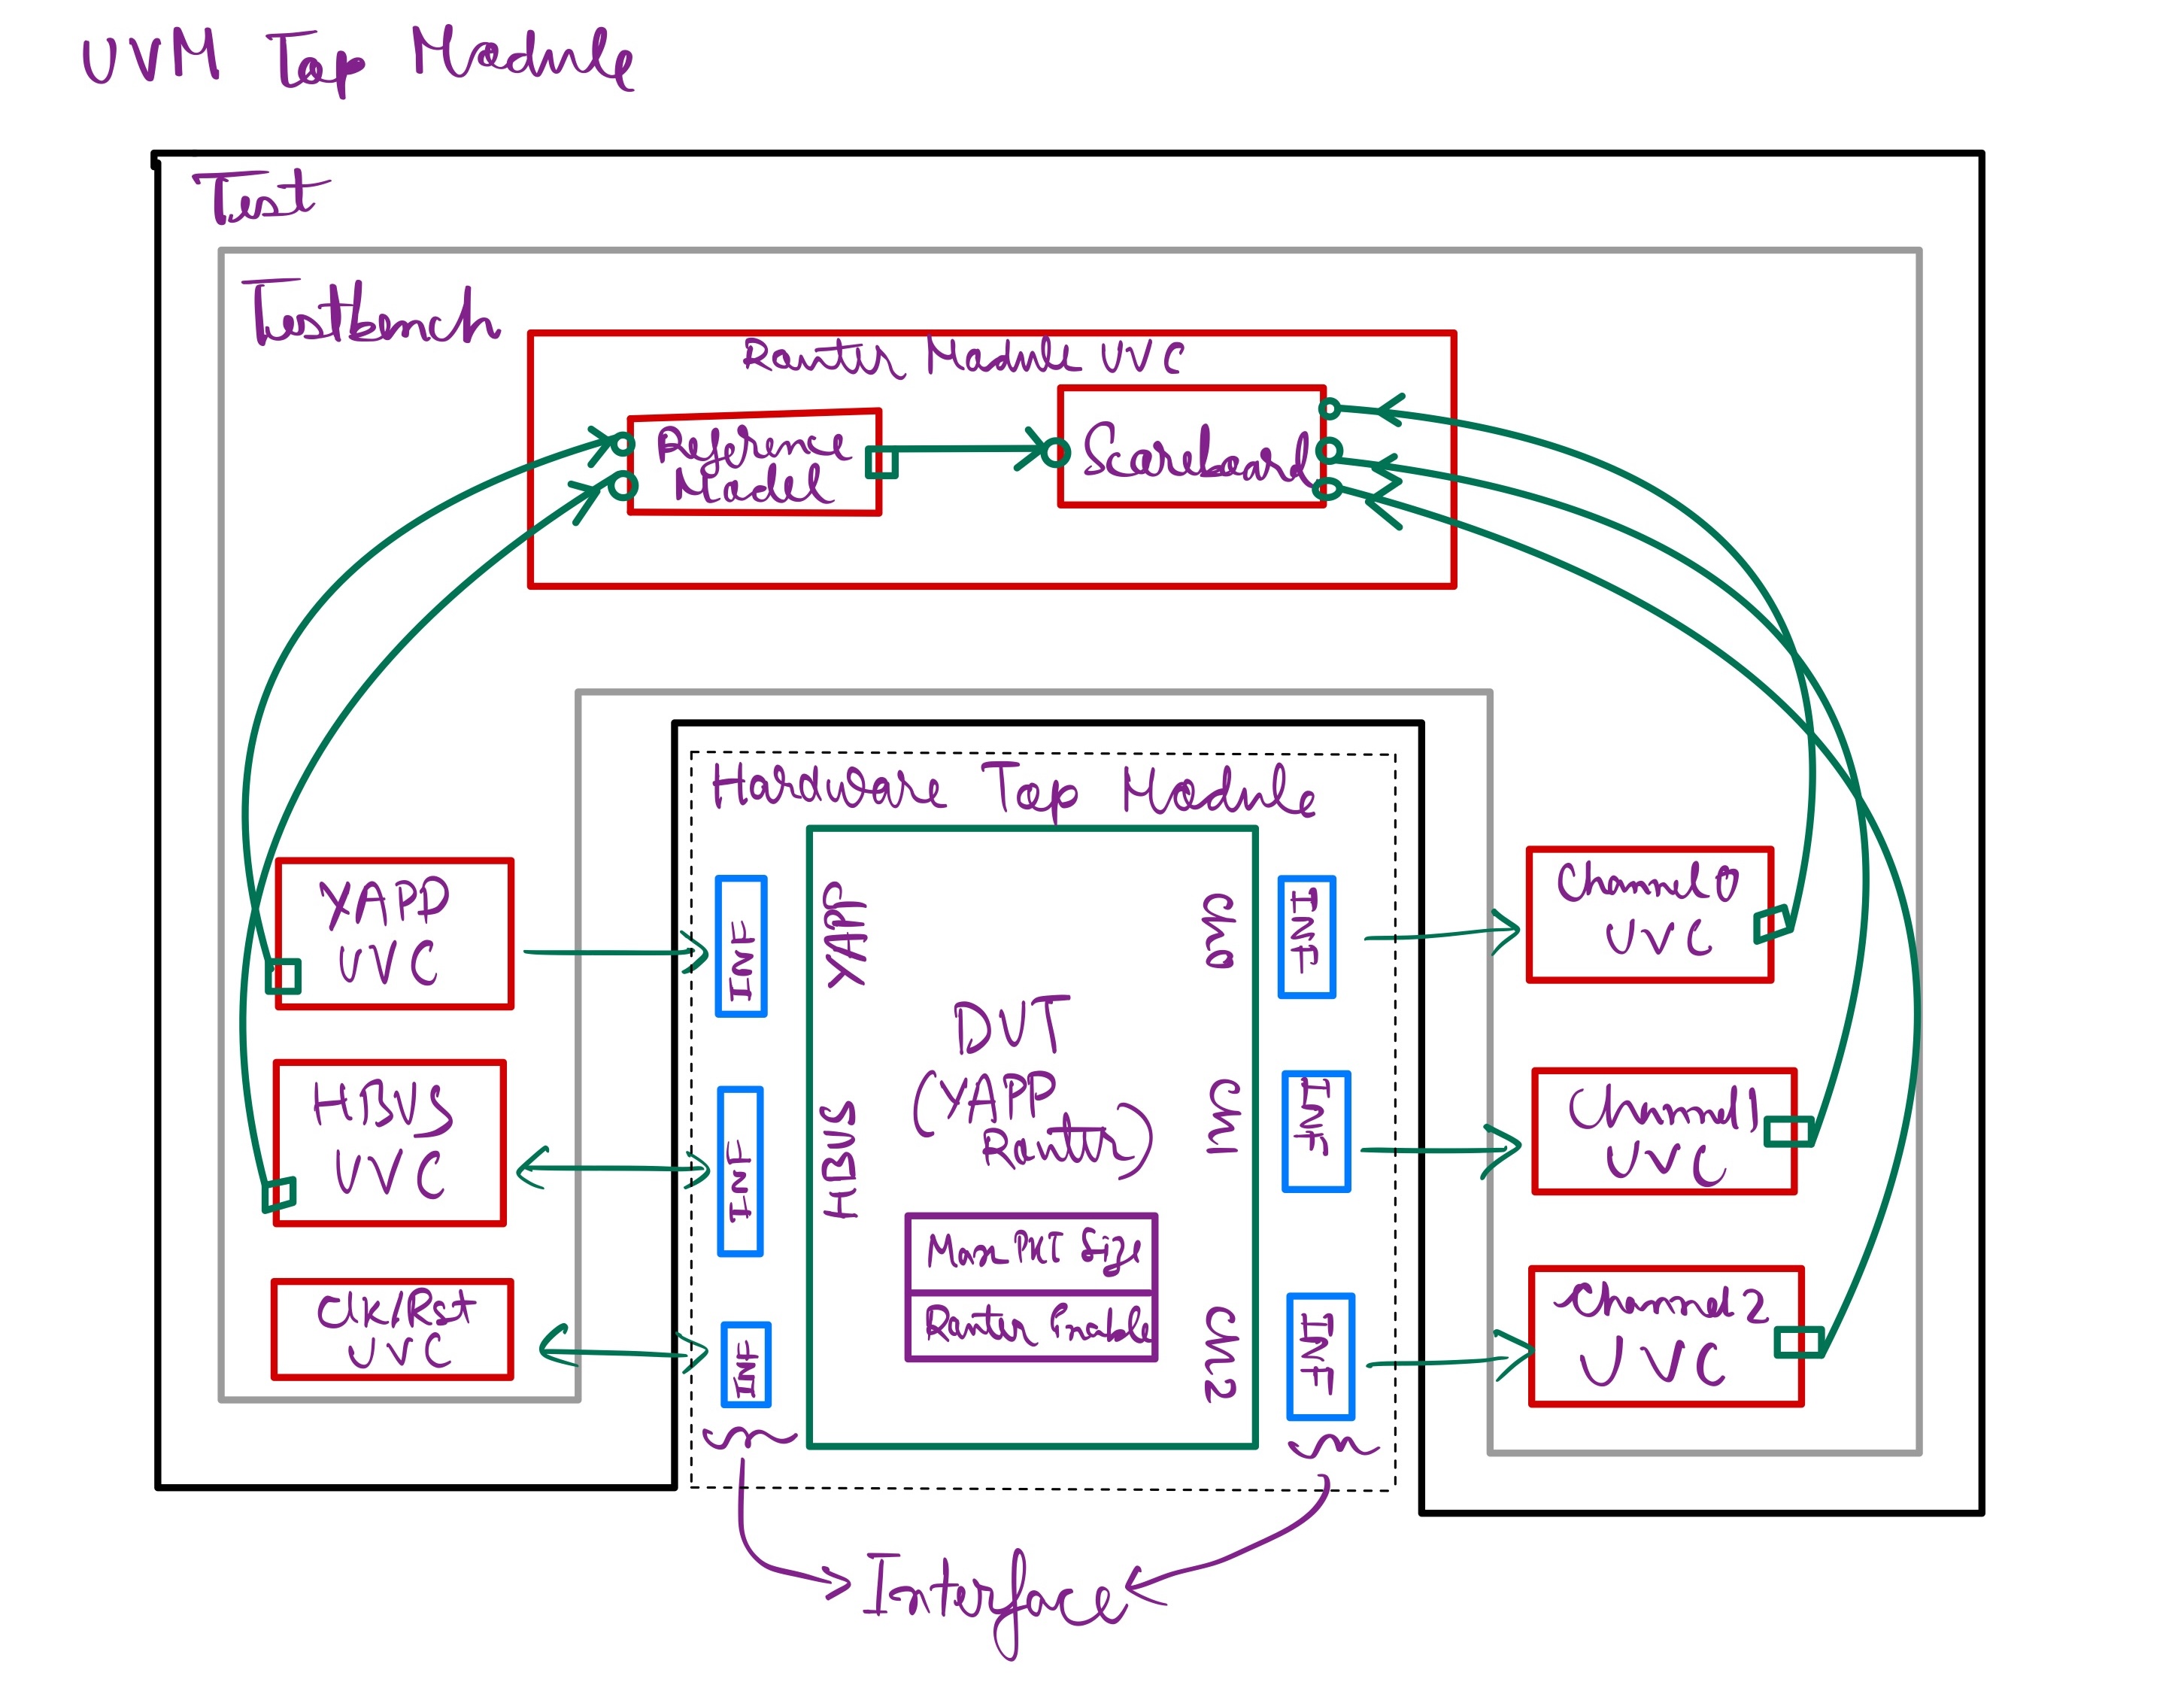 UVM Top Module
Test
Testbench
Router Module UVC
Reference
Model
Scoreboard
Hardware Top Module
YAPP
UVC
HBUS
UVC
Clk/Rst
UVC
INF
INF
INF
YAPP
HBUS
DUT
(YAPP
Router)
Max PKT Size
Router Enable
Chn0
Chn1
Chn2
INF
INF
INF
Channel 0
UVC
Channel 1
UVC
Channel 2
UVC
Interface